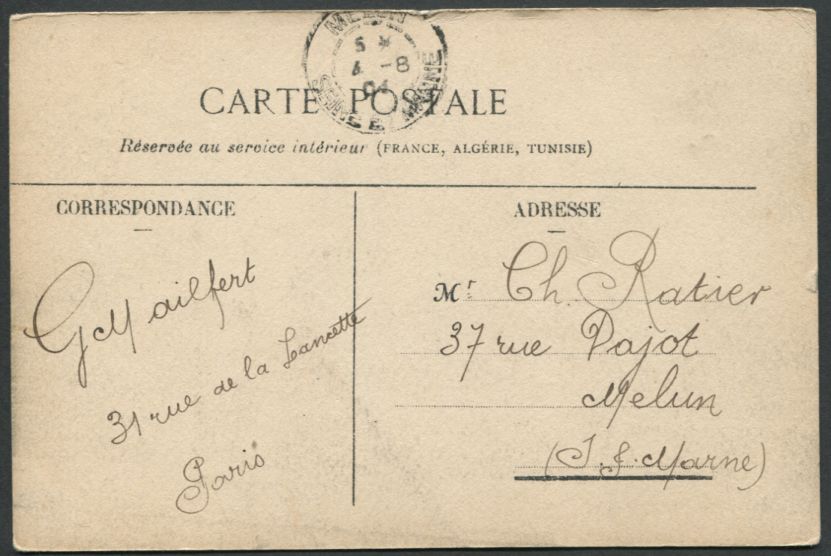 MELUN
5
4 -8
04
SEINE ET MARNE
CARTE POSTALE
Réservée au service intérieur (FRANCE, ALGÉRIE, TUNISIE)
CORRESPONDANCE
G Mailfert
31 rue de la Lancette
Paris
ADRESSE
Mr Ch. Ratier
37 rue Pajot
Melun
(S. &. Marne)